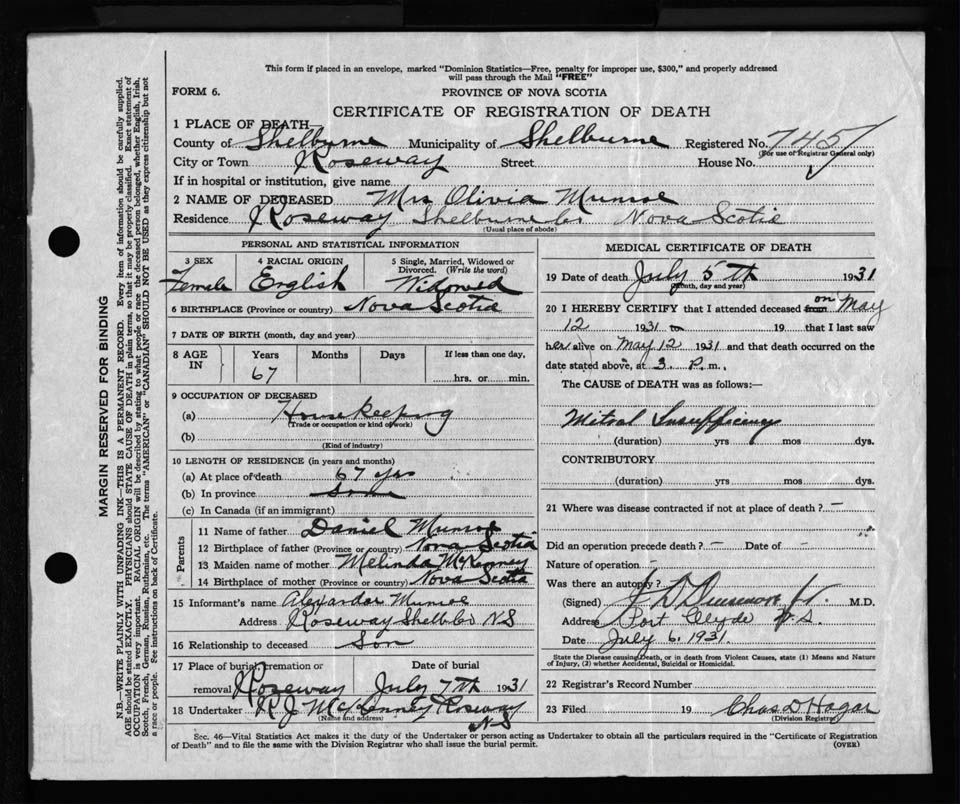 This form if placed in an envelope, marked "Dominion Statistics—Free, penalty for improper use, $300," and properly addressed
will pass through the Mail "FREE"
FORM 6.
PROVINCE OF NOVA SCOTIA
CERTIFICATE OF REGISTRATION OF DEATH
1 PLACE OF DEATH—
County of Shelburne Municipality of Shelburne Registered No. 7457
(For use of Registrar General only)
City or Town Roseway Street House No.
If in hospital or institution, give name
2 NAME OF DECEASED Mrs Olivia Munroe
Residence Roseway Shelburne Co Nova Scotia
(Usual place of abode)
PERSONAL AND STATISTICAL INFORMATION
3 SEX 4 RACIAL ORIGIN 5 Single, Married, Widowed or
Divorced. (Write the word)
Female English Widowed
6 BIRTHPLACE (Province or country) Nova Scotia
7 DATE OF BIRTH (month, day and year)
8 AGE IN Years Months Days If less than one day,
67 hrs. or min.
9 OCCUPATION OF DECEASED
(a) Housekeeping
(Trade or occupation or kind of work)
(b)
(Kind of industry)
10 LENGTH OF RESIDENCE (in years and months)
(a) At place of death 67 yrs
(b) In province Same
(c) In Canada (if an immigrant)
Parents
11 Name of father Daniel Munroe
12 Birthplace of father (Province or country) Nova Scotia
13 Maiden name of mother Melinda McKenney
14 Birthplace of mother (Province or country) Nova Scotia
15 Informant's name Alexander Munroe
Address Roseway Shelb Co NS
16 Relationship to deceased Son
17 Place of burial, cremation or removal Roseway Date of burial July 7th 1931
18 Undertaker R J McKenney Roseway
(Name and address) N-S
MEDICAL CERTIFICATE OF DEATH
19 Date of death July 5th 1931
(Month, day and year)
20 I HEREBY CERTIFY that I attended deceased from on May
12 1931 to 19 that I last saw
her alive on May 12 1931 and that death occurred on the
date stated above, at 3. P. m.
The CAUSE of DEATH was as follows:—
Mitral Insufficincy
(duration) yrs mos dys.
CONTRIBUTORY
(duration) yrs mos dys.
21 Where was disease contracted if not at place of death? –
Did an operation precede death? – Date of –
Nature of operation –
Was there an autopsy?
(Signed) M.D.
Address Port Clyde N.S.
Date July 6. 1931.
State the Disease causing Death, or in death from Violent Causes, state (1) Means and Nature
of Injury, (2) whether Accidental, Suicidal or Homicidal.
22 Registrar's Record Number
23 Filed 19 Chas D Hagar
(Division Registrar)
Sec. 46—Vital Statistics Act makes it the duty of the Undertaker or person acting as Undertaker to obtain all the particulars required in the "Certificate of Registration
of Death" and to file the same with the Division Registrar who shall issue the burial permit. (OVER)
MARGIN RESERVED FOR BINDING
N.B.—WRITE PLAINLY WITH UNFADING INK—THIS IS A PERMANENT RECORD. Every item of information should be carefully supplied.
AGE should be stated EXACTLY. PHYSICIANS should STATE CAUSE OF DEATH in plain terms, so that it may be properly classified. Exact statement of
OCCUPATION is very important. RACIAL ORIGIN will be described by stating to what people or race the deceased person belonged, whether English, Irish,
Scotch, French, German, Russian, Ruthenian, etc. The terms "AMERICAN" or "CANADIAN" SHOULD NOT BE USED as they express citizenship but not
a race or people. See instructions on back of Certificate.